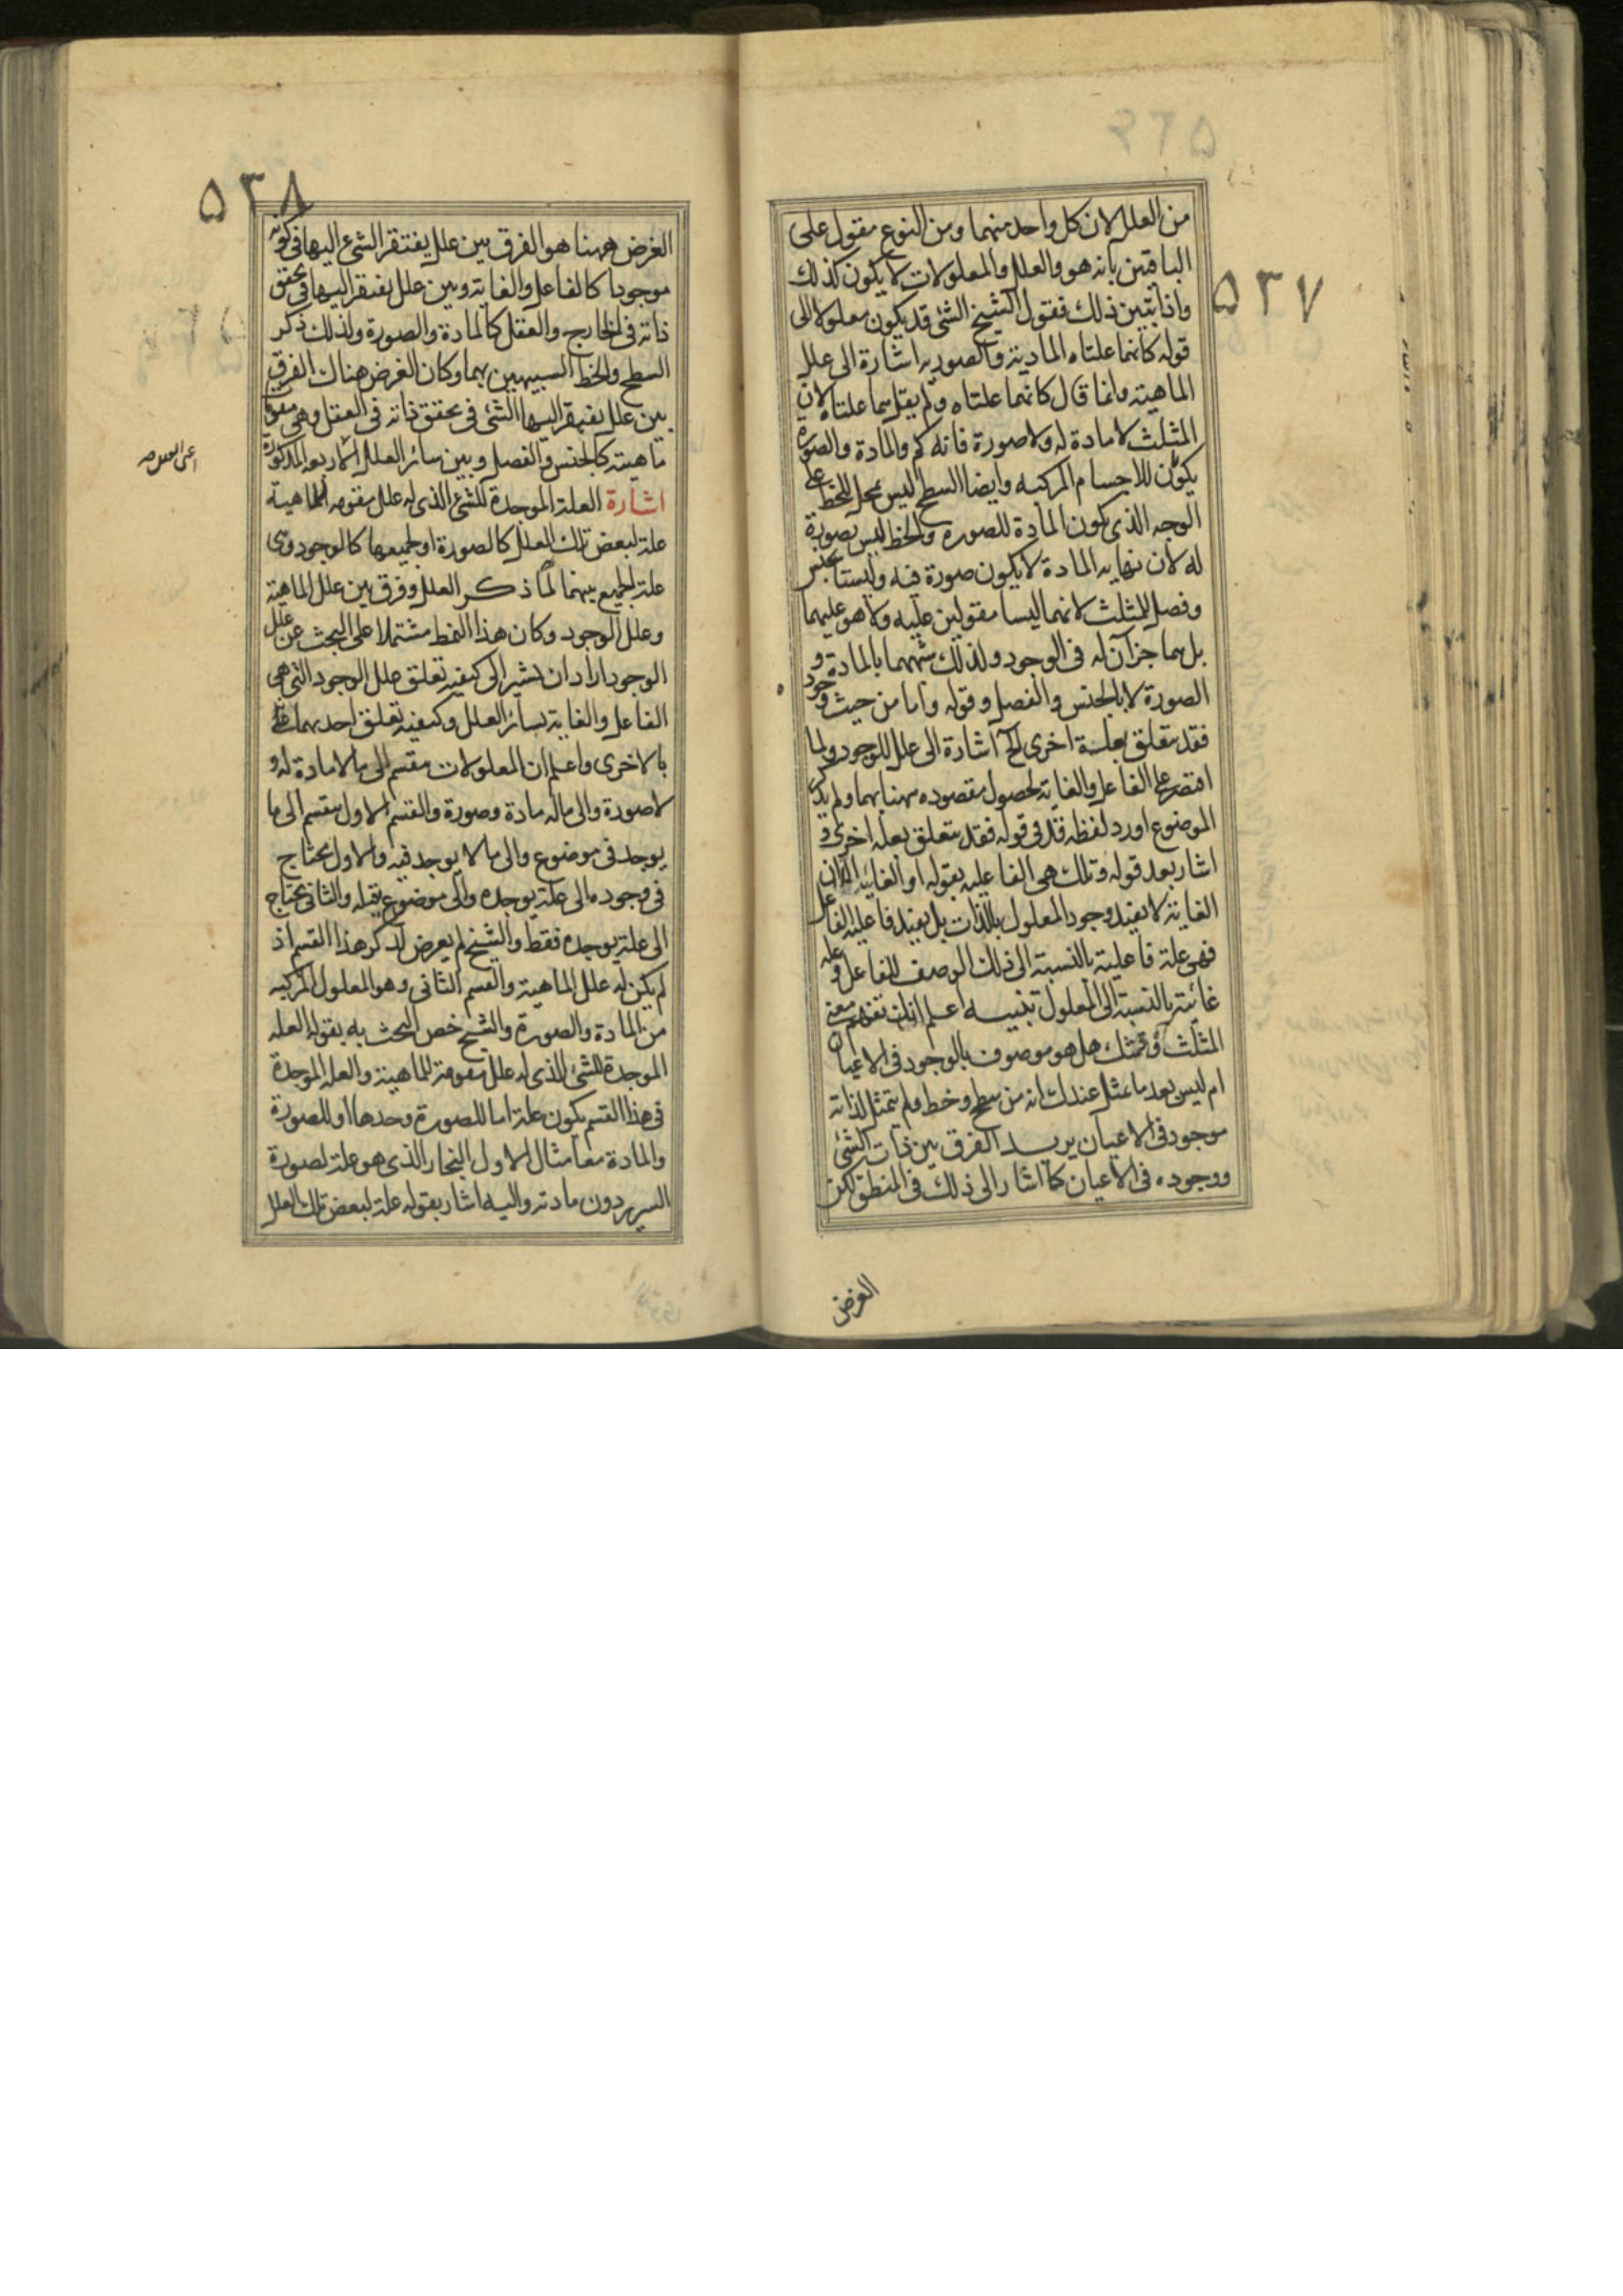 ۵۳۷
من العلل لان كل واحد منهما ومن النوع مقول على
الباقيين بانه هو والعلل والمعلولات لا يكون كذلك
واذا تبين ذلك فقول الشيخ الشئ قد يكون معلولا الى
قوله كانهما علتاه المادية والصوريه اشارة الى علل
الماهية وانما قال كانهما علتاه ولم يقل هما علتاه لان
المثلث لا مادة له ولا صورة فانه كم والمادة والصوره
يكون للاجسام المركبه وايضا السطح ليس بمحل للخط على
الوجه الذى يكون المادة للصوره والخط ليس بصورة
له لان نهايه المادة لا يكون صورة فيه وليستا بجنس
وفصل للمثلث لانهما ليسا مقولين عليه ولا هو عليهما
بل هما جزآن له فى الوجود ولذلك شبههما بالمادة و
الصورة لا بالجنس والفصل وقوله واما من حيث وجوده
فقد يتعلق بعلة اخرى الخ اشارة الى علل الوجود ولما
اقتصر على الفاعل والغاية لحصول مقصوده ههنا بهما ولم يذكر
الموضوع اورد لفظه قد فى قوله فقد يتعلق بعله اخرى و
اشار بعد قوله وتلك هى الفاعليه بقوله او الغائيه الى ان
الغاية لا يفيد وجود المعلول بالذات بل يفيد فاعليه الفاعل
فهى علة فاعلية بالنسبة الى ذلك الوصف للفاعل وعله
غائية بالنسبة الى المعلول تنبيه اعلم انك تفهم معنى
المثلث وتشك هل هو موصوف بالوجود فى الاعيان
ام ليس بعد ما تمثل عندك انه من سطح وخط ولم يتمثل لك انه
موجود فى الاعيان يريد الفرق بين ذات الشئ
ووجوده فى الاعيان كما اشار الى ذلك فى المنطق لكن
الغرض
۵۳۸
الغرض ههنا هو الفرق بين علل يفتقر الشئ اليها فى كونه
موجودا كالفاعل والغاية وبين علل يفتقر اليها فى تحقق
ذاته فى الخارج والعقل كالمادة والصورة ولذلك ذكر
السطح والخط الشبيهين بهما وكان الغرض هناك الفرق
بين علل يفتقر اليها الشئ فى تحقق ذاته فى العقل وهى مقومات
ماهيته كالجنس والفصل وبين سائر العلل الاربعه المذكورة
اشارة العلة الموجدة للشئ الذى له علل مقومه للماهية
علة لبعض تلك العلل كالصورة او لجميعها كالوجود وهى
علة الجميع بينهما لما ذكر العلل وفرق بين علل الماهية
وعلل الوجود وكان هذا النمط مشتملا على البحث عن علل
الوجود اراد ان يشير الى كيفية تعلق علل الوجود التى هى
الفاعل والغاية بسائر العلل وكيفية تعلق احديهما
بالاخرى واعلم ان المعلولات ينقسم الى ما لا مادة له و
لا صورة والى ماله مادة وصورة والقسم الاول ينقسم الى ما
يوجد فى موضوع والى ما لا يوجد فيه والاول يحتاج
فى وجوده الى علة يوجده والى موضوع يقبله والثانى يحتاج
الى علة يوجده فقط والشيخ لم يعرض لذكر هذا القسم اذ
لم يكن له علل الماهية والقسم الثانى وهو المعلول المركب
من المادة والصورة والشيخ خص البحث به بقوله العله
الموجدة للشئ الذى له علل مقومة للماهية والعله الموجدة
فى هذا القسم يكون علة اما للصورة وحدها او للصورة
والمادة معا مثال الاول النجار الذى هو علة لصورة
السرير دون مادته واليه اشار بقوله علة لبعض تلك العلل